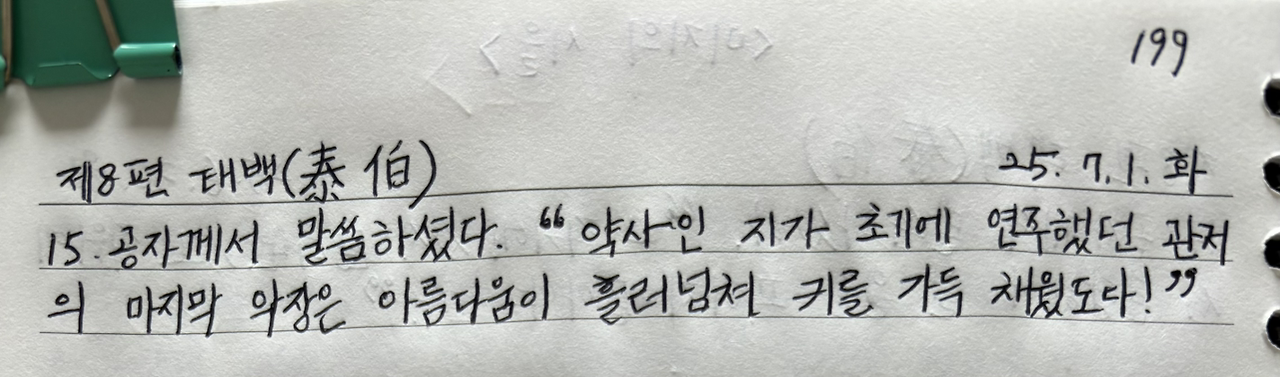 199
제8편 태백(泰伯) 25. 7. 1. 화
15. 공자께서 말씀하셨다. “약사인 지가 초기에 연주했던 관저
의 마지막 악장은 아름다움이 흘러넘쳐 키를 가득 채웠도다!”